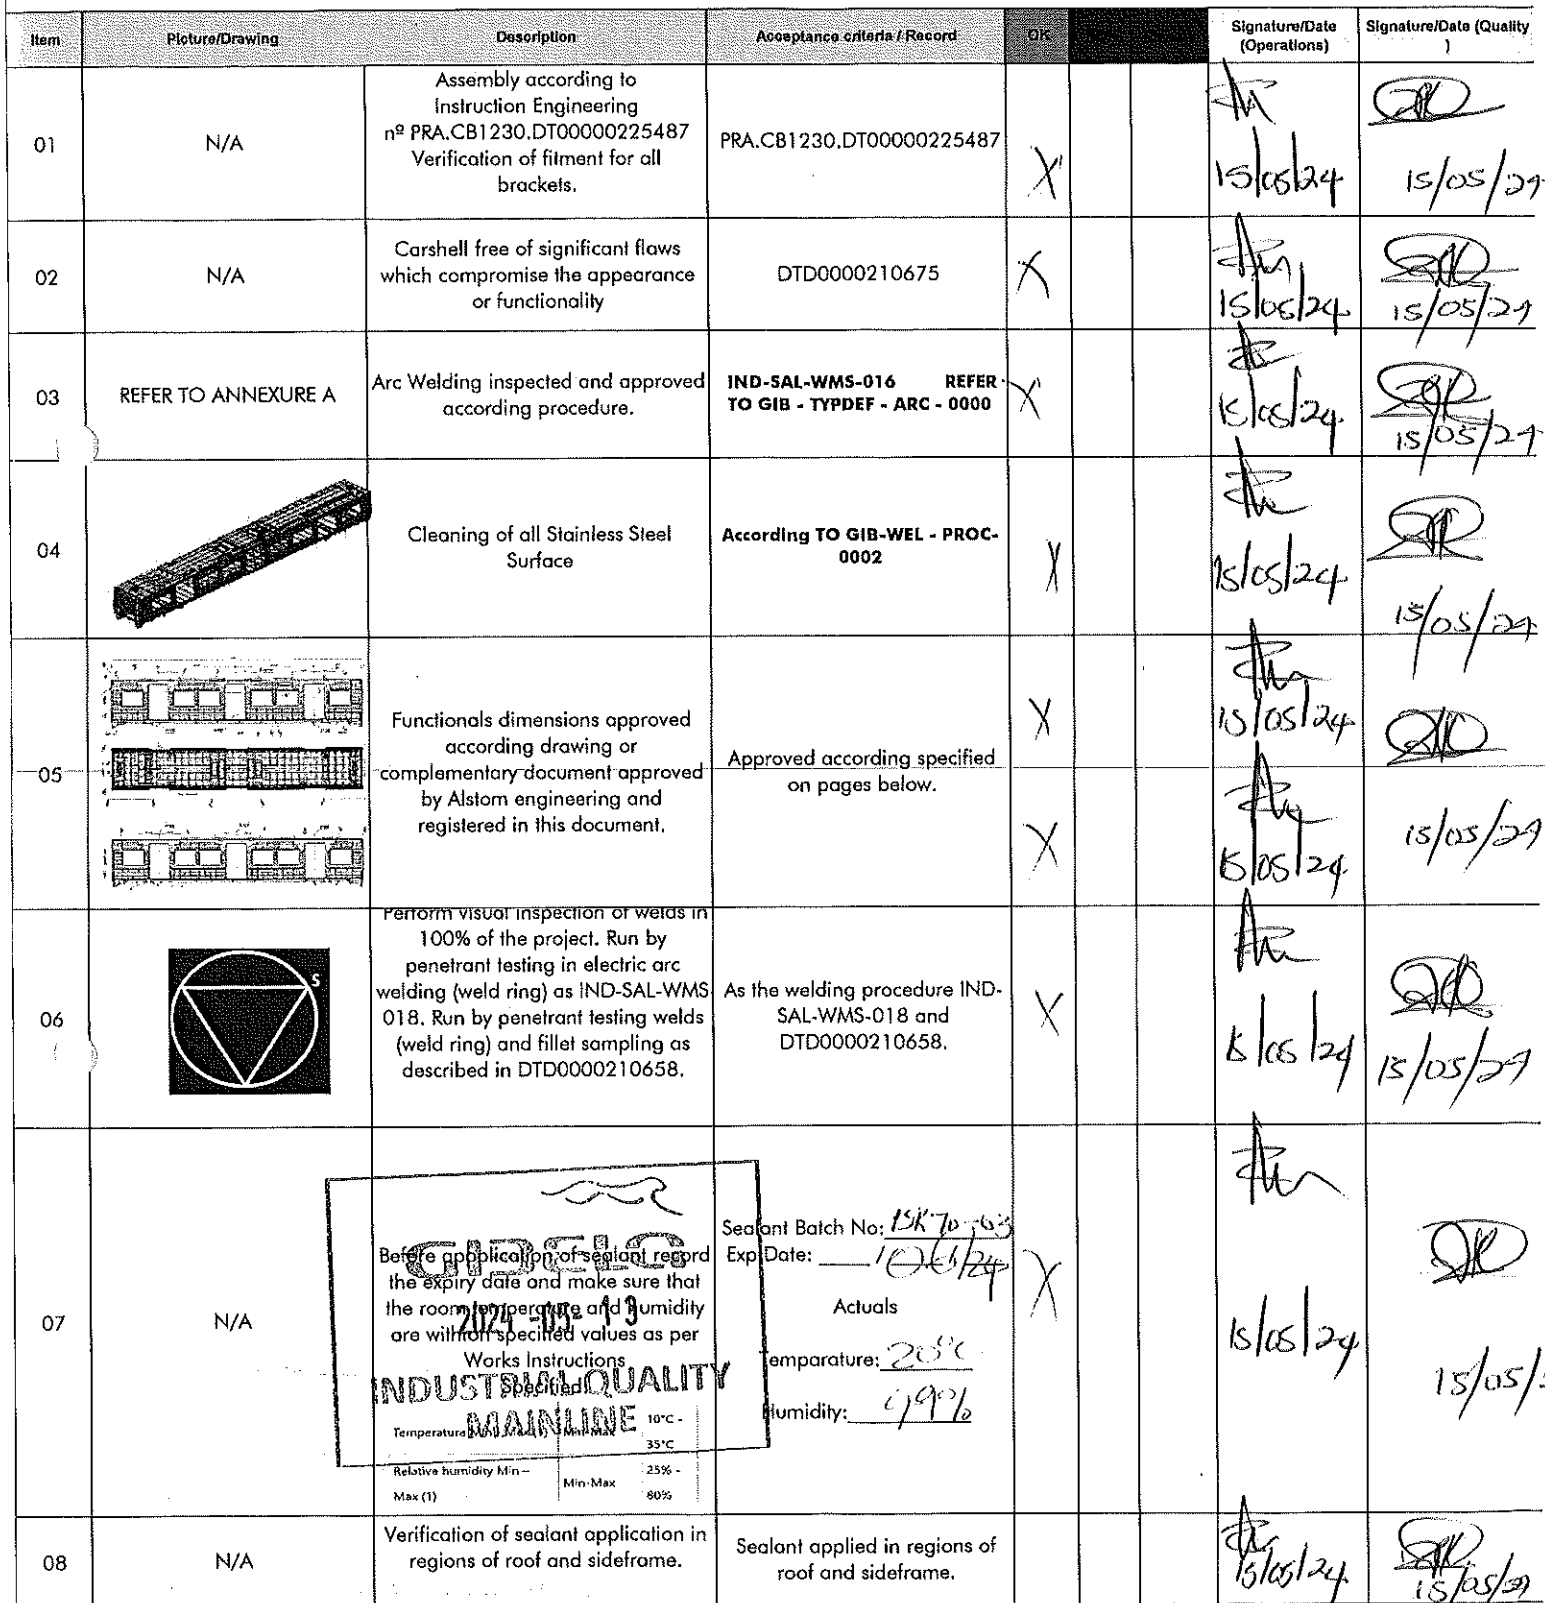 Item Picture/Drawing Description Acceptance criteria / Record OK Signature/Date (Operations) Signature/Date (Quality )
01
N/A
Assembly according to
Instruction Engineering
nº PRA.CB1230.DT00000225487
Verification of fitment for all
brackets.
PRA.CB1230.DT00000225487
X
15/05/24
15/05/24
02
N/A
Carshell free of significant flaws
which compromise the appearance
or functionality
DTD0000210675
X
15/05/24
15/05/24
03
REFER TO ANNEXURE A
Arc Welding inspected and approved
according procedure.
IND-SAL-WMS-016 REFER
TO GIB - TYPDEF - ARC - 0000
X
15/05/24
15/05/24
04
Cleaning of all Stainless Steel
Surface
According TO GIB-WEL - PROC-
0002
X
15/05/24
15/05/24
05
Functionals dimensions approved
according drawing or
complementary document approved
by Alstom engineering and
registered in this document.
Approved according specified
on pages below.
X
15/05/24
X
15/05/24
15/05/24
06
S
Perform visual inspection of welds in
100% of the project. Run by
penetrant testing in electric arc
welding (weld ring) as IND-SAL-WMS
018. Run by penetrant testing welds
(weld ring) and fillet sampling as
described in DTD0000210658.
As the welding procedure IND-
SAL-WMS-018 and
DTD0000210658.
X
15/05/24
15/05/24
07
N/A
Before appplication of sealant record
the expiry date and make sure that
the room temperature and humidity
are within specified values as per
Works Instructions
Specified
Temperature Min-Max 10°C -
35°C
Relative humidity Min –
Max (1)
Min-Max
25% -
80%
GIBELA
2024 -05- 13
INDUSTRIAL QUALITY
MAINLINE
Sealant Batch No:
Exp Date:
Actuals
Temparature: 20°C
Humidity:
X
15/05/24
15/05/
08
N/A
Verification of sealant application in
regions of roof and sideframe.
Sealant applied in regions of
roof and sideframe.
15/05/24
15/05/24